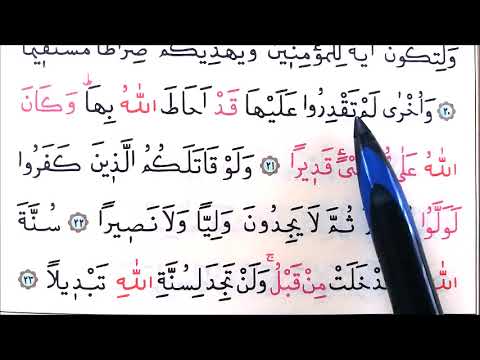 وَلِتَكُونَ اٰيَةً لِلْمُؤْمِنٖينَ وَيَهْدِيَكُمْ صِرَاطًا مُسْتَقٖيمًا
٢٠ وَاُخْرٰى لَمْ تَقْدِرُوا عَلَيْهَا قَدْ اَحَاطَ اللّٰهُ بِهَاۜ وَكَانَ
اللّٰهُ عَلٰى شَيْءٍ قَدٖيرًا ٢١ وَلَوْ قَاتَلَكُمُ الَّذٖينَ كَفَرُوا
لَوَلَّوُا ثُمَّ لَا يَجِدُونَ وَلِيًّا وَلَا نَصٖيرًا ٢٢ سُنَّةَ
خَلَتْ مِنْ قَبْلُۚ وَلَنْ تَجِدَ لِسُنَّةِ اللّٰهِ تَبْدٖيلًا ٢٣